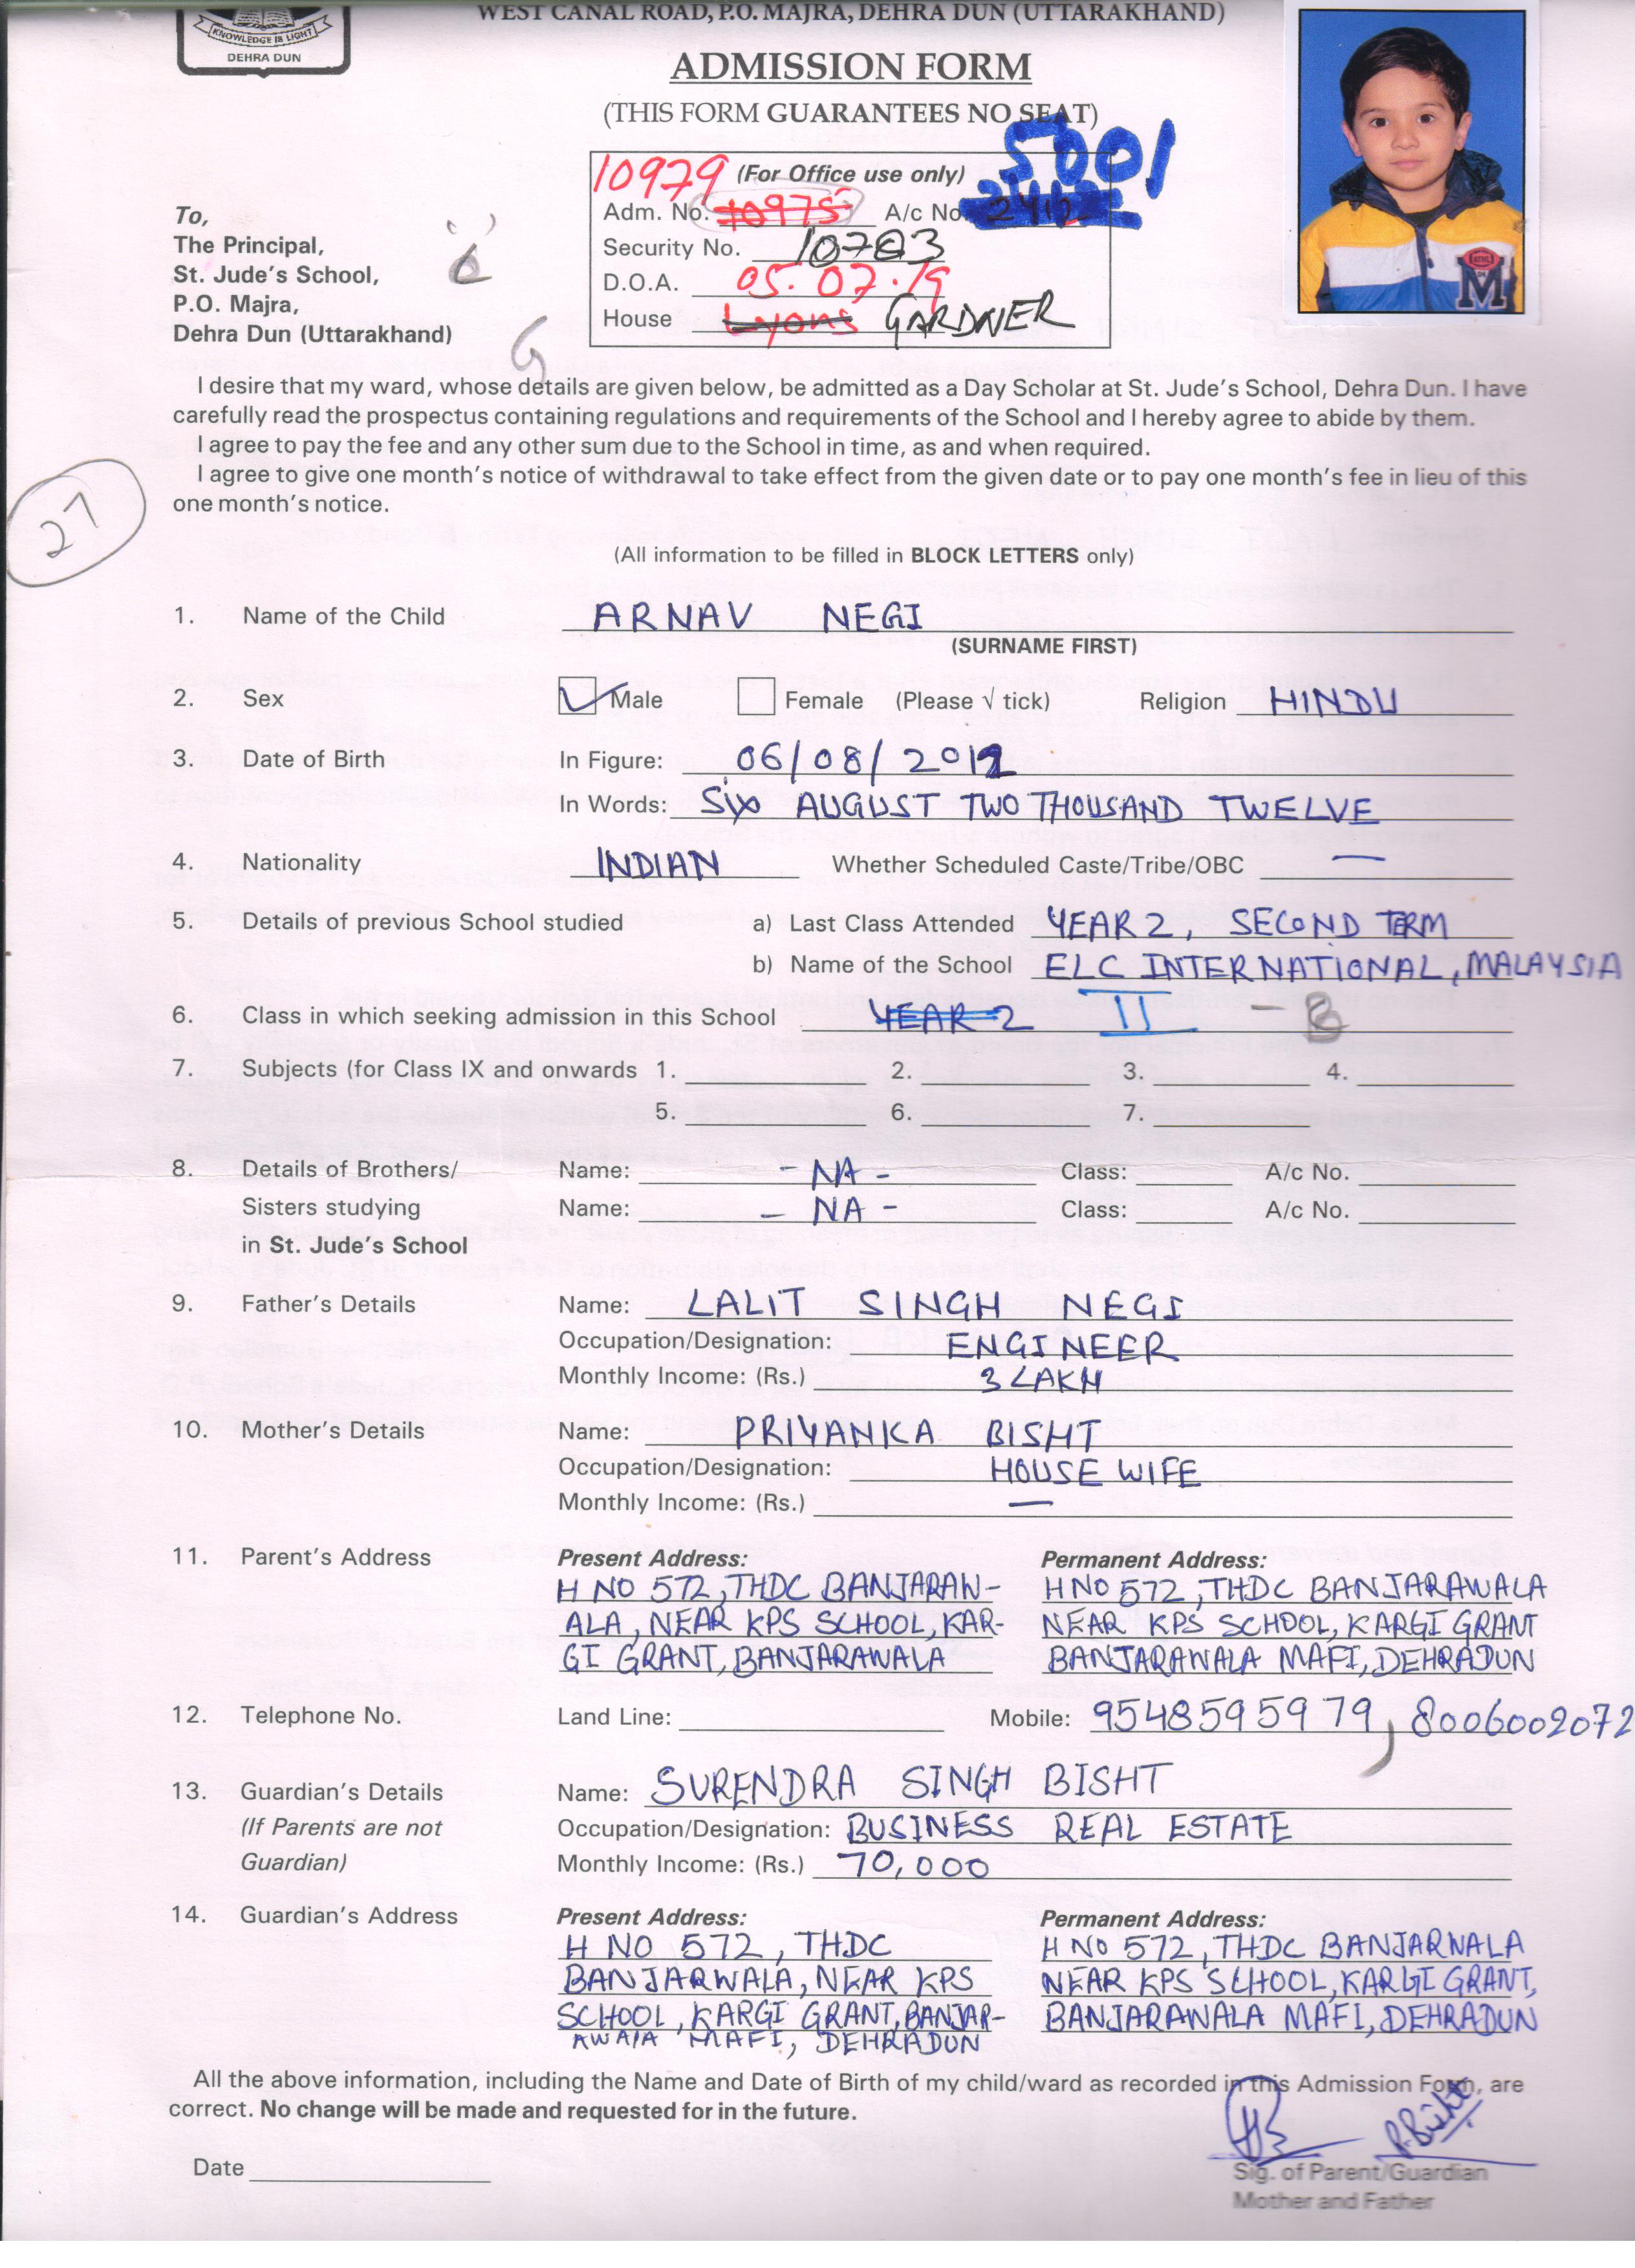 WEST CANAL ROAD, P.O. MAJRA, DEHRA DUN (UTTARAKHAND)
KNOWLEDGE IS LIGHT
DEHRA DUN
ADMISSION FORM
(THIS FORM GUARANTEES NO SEAT)
5001
10979 (For Office use only)
Adm. No. 10975 A/c No. 2412
Security No. 10783
D.O.A. 05.07.19
House Lyons GARDNER
To,
The Principal,
St. Jude's School,
P.O. Majra,
Dehra Dun (Uttarakhand)
G
I desire that my ward, whose details are given below, be admitted as a Day Scholar at St. Jude's School, Dehra Dun. I have
carefully read the prospectus containing regulations and requirements of the School and I hereby agree to abide by them.
I agree to pay the fee and any other sum due to the School in time, as and when required.
I agree to give one month's notice of withdrawal to take effect from the given date or to pay one month's fee in lieu of this
one month's notice.
27
(All information to be filled in BLOCK LETTERS only)
1. Name of the Child ARNAV NEGI
(SURNAME FIRST)
2. Sex Male Female (Please √ tick) Religion HINDU
3. Date of Birth In Figure: 06/08/2012
In Words: SIX AUGUST TWO THOUSAND TWELVE
4. Nationality INDIAN Whether Scheduled Caste/Tribe/OBC —
5. Details of previous School studied a) Last Class Attended YEAR 2, SECOND TERM
b) Name of the School ELC INTERNATIONAL, MALAYSIA
6. Class in which seeking admission in this School YEAR 2 II - B
7. Subjects (for Class IX and onwards 1. 2. 3. 4.
5. 6. 7.
8. Details of Brothers/ Name: - NA - Class: A/c No.
Sisters studying Name: - NA - Class: A/c No.
in St. Jude's School
9. Father's Details Name: LALIT SINGH NEGI
Occupation/Designation: ENGINEER
Monthly Income: (Rs.) 3 LAKH
10. Mother's Details Name: PRIYANKA BISHT
Occupation/Designation: HOUSE WIFE
Monthly Income: (Rs.) —
11. Parent's Address Present Address: Permanent Address:
H NO 572, THDC BANJARAW- H NO 572, THDC BANJARAWALA
ALA, NEAR KPS SCHOOL, KAR- NEAR KPS SCHOOL, KARGI GRANT
GI GRANT, BANJARAWALA BANJARAWALA MAFI, DEHRADUN
12. Telephone No. Land Line: Mobile: 9548595979, 8006002072
13. Guardian's Details Name: SURENDRA SINGH BISHT
(If Parents are not Occupation/Designation: BUSINESS REAL ESTATE
Guardian) Monthly Income: (Rs.) 70,000
14. Guardian's Address Present Address: Permanent Address:
H NO 572, THDC H NO 572, THDC BANJARWALA
BANJARWALA, NEAR KPS NEAR KPS SCHOOL, KARGI GRANT,
SCHOOL, KARGI GRANT, BANJAR- BANJARAWALA MAFI, DEHRADUN
AWALA MAFI, DEHRADUN
All the above information, including the Name and Date of Birth of my child/ward as recorded in this Admission Form, are
correct. No change will be made and requested for in the future.
P.Bisht
Date
Sig. of Parent/Guardian
Mother and Father